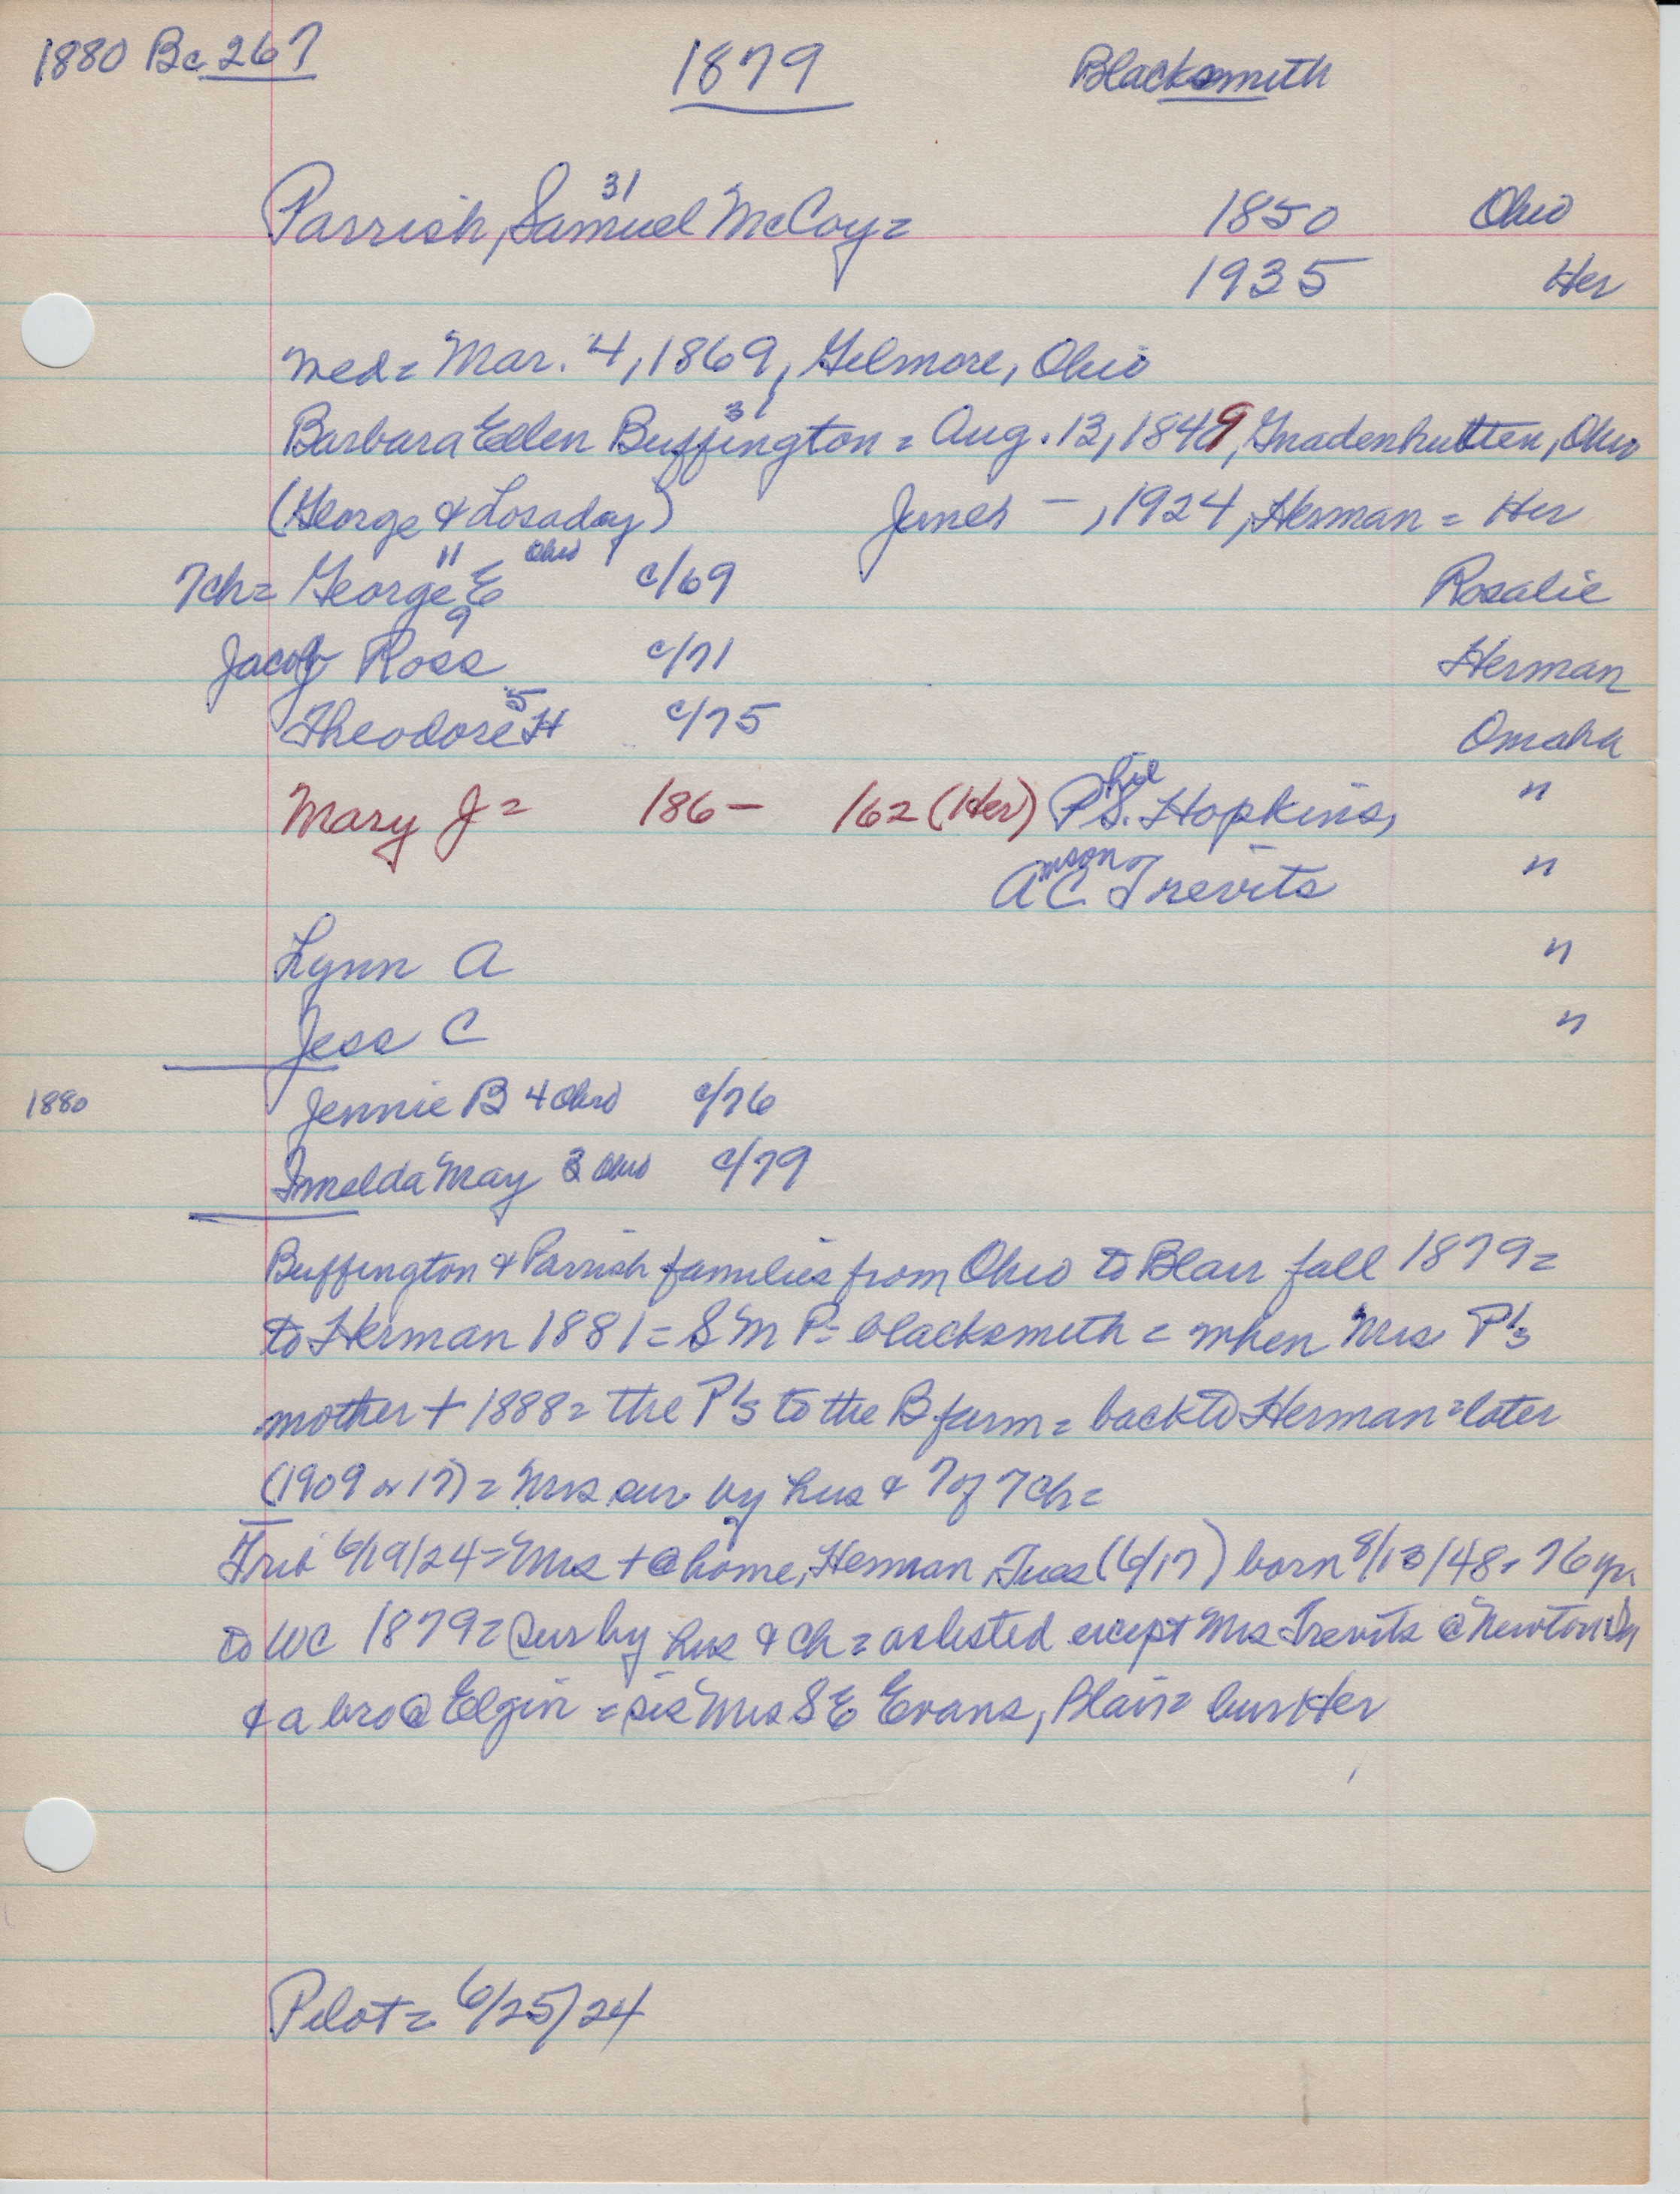 1880 Bc 267 1879 Blacksmith
Parrish, Samuel McCoy = 31 1850 Ohio
1935 Her
med = Mar. 4, 1869, Gilmore, Ohio
Barbara Ellen Buffington 31 = Aug. 13, 1849, Gnadenhutten, Ohio
(George & Losaday) June -, 1924, Herman = Her
7ch = George E 11 Ohio c/69 Rosalie
Jacob Ross 9 c/71 Herman
Theodore H 5 c/75 Omaha
Mary J = 186- 162 (Her) Phil S. Hopkins, "
Anson C. Trevits "
Lynn A "
Jess C "
1880 Jennie B 4 Ohio c/76
Imelda May Ohio c/79
Buffington & Parrish families from Ohio to Blair fall 1879 =
to Herman 1881 = S M P = blacksmith = when Mrs P's
mother + 1888 = the P's to the B farm = back to Herman = later
(1909 or 17) = Mrs sur by hus & 7 of 7 ch =
Trib 6/19/24 = Mrs + @ home, Herman, Tues (6/17) born 8/13/48 = 76 yr.
to WC 1879 = sur by hus & ch = as listed except Mrs Trevits @ Newton
& a bro @ Elgin = sis Mrs S E Evans, Blair = bur Her
Pilot = 6/25/24